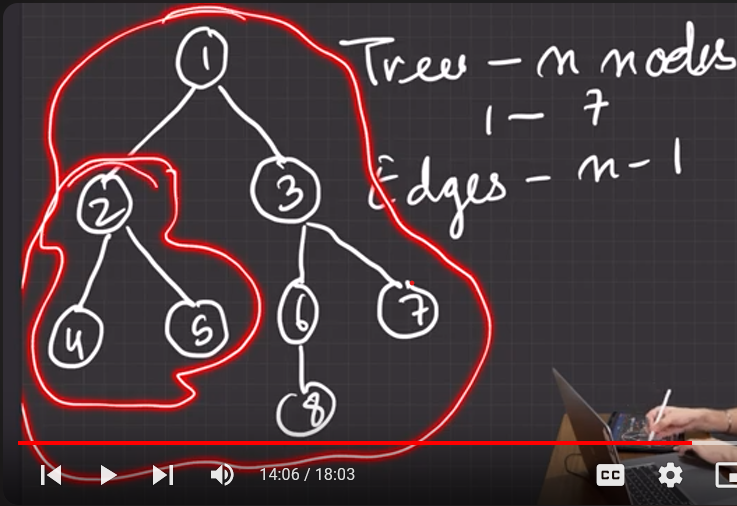 Tree - n nodes
1 - 7
Edges - n - 1
1
2
3
4
5
6
7
8
14:06 / 18:03
CC